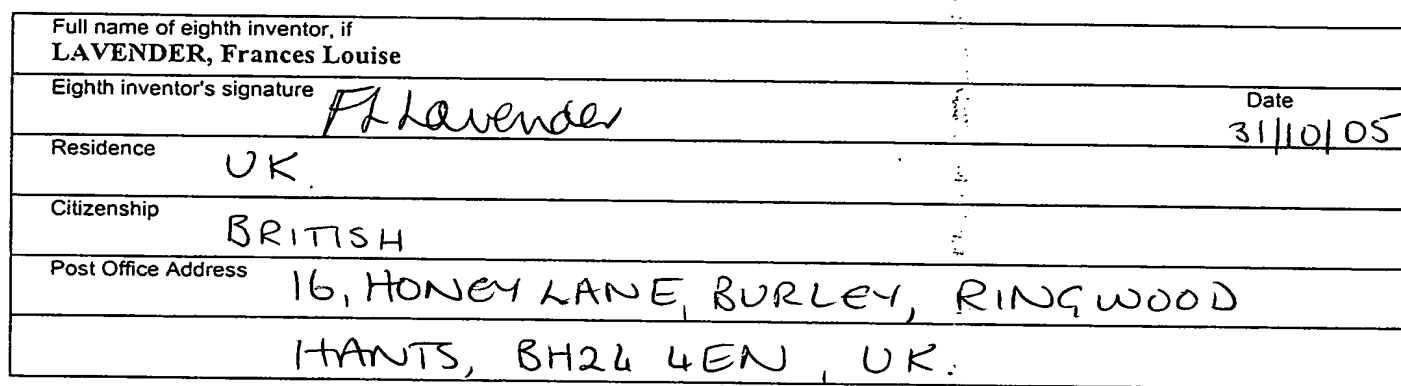 Full name of eighth inventor, if
LAVENDER, Frances Louise
Eighth inventor's signature FL Lavender
Date
31/10/05
Residence UK.
Citizenship BRITISH
Post Office Address 16, HONEY LANE, BURLEY, RINGWOOD
HANTS, BH24 4EN, UK.